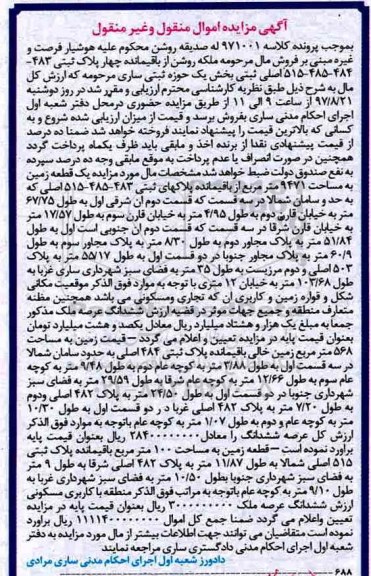 آگهی مزایده اموال منقول وغیر منقول
بموجب پرونده کلاسه ۹۷۱۰۰۱ له صدیقه روشن محکوم علیه هوشیار فرصت و
غیره مبنی بر فروش مال مرحومه ملکه روشن از باقیمانده چهار پلاک ثبتی ۴۸۳-
۴۸۴-۴۸۵-۵۱۵ اصلی ثبتی بخش یک حوزه ثبتی ساری مرحومه که ارزش کل
مال به شرح ذیل طبق نظریه کارشناسی محترم ارزیابی و مقرر شد در روز دوشنبه
۹۷/۸/۲۱ از ساعت ۹ الی ۱۱ از طریق مزایده حضوری درمحل دفتر شعبه اول
اجرای احکام مدنی ساری بفروش برسد و قیمت از میزان ارزیابی شده شروع و به
کسانی که بالاترین قیمت را پیشنهاد نمایند فروخته خواهد شد ضمنا ده درصد
از قیمت پیشنهادی نقدا از برنده اخذ و مابقی باید ظرف یکماه پرداخت گردد
همچنین در صورت انصراف یا عدم پرداخت به موقع مابقی وجه ده درصد سپرده
به نفع صندوق دولت ضبط خواهد شد مشخصات مال مورد مزایده یک قطعه زمین
به مساحت ۹۴۷۱ متر مربع از باقیمانده پلاکهای ثبتی ۴۸۳-۴۸۵-۵۱۵ اصلی که
به حد و سامان شمالا درسه قسمت که قسمت دوم آن شرقی اول به طول ۶۷/۷۵
متر به خیابان قارن دوم به طول ۴/۹۵ متر به خیابان قارن سوم به طول ۱۷/۵۷ متر
به خیابان قارن شرقا در سه قسمت که قسمت دوم ان جنوبی است اول به طول
۵۱/۸۴ متر به پلاک مجاور دوم به طول ۸/۳۰ متر به پلاک مجاور سوم به طول
۶۰/۹ متر به پلاک مجاور جنوبا در دو قسمت اول به طول ۵۵/۱۷ متر به پلاک
۵۰۳ اصلی و دوم مرزیست به طول ۳۵ متر به فضای سبز شهرداری ساری غربا به
طول ۱۰۳/۶۸ متر به خیابان ۱۲ متری با توجه به موارد فوق الذکر موقعیت مکانی
شکل و قواره زمین و کاربری ان که تجاری ومسکونی می باشد همچنین مظنه
متعارف منطقه و جمیع جهات موثر در قضیه ارزش ششدانگ عرصه ملک مذکور
جمعا به مبلغ یک هزار و هشتاد میلیارد ریال معادل یکصد و هشت میلیارد تومان
بعنوان قیمت پایه در مزایده تعیین و اعلام می گردد –قیمت زمین به مساحت
۵۶۸ متر مربع زمین خالی باقیمانده پلاک ثبتی ۴۸۴ اصلی به حدود سامان شمالا
در سه قسمت اول به طول ۳/۸۸ متر به کوچه عام دوم به طول ۹/۴۸ متر به کوچه
عام سوم به طول ۱۲/۶۶ متر به کوچه عام شرقا به طول ۲۹/۵۹ متر به فضای سبز
شهرداری جنوبا در دو قسمت اول به طول ۲۴/۵۲ متر به پلاک ۴۸۲ اصلی ودوم
به طول ۷/۲۰ متر به پلاک ۴۸۲ اصلی غربا د ر دو قسمت اول به طول ۱۰/۳۰
متر به کوچه عام و دوم به طول ۱/۰۷ متر به کوچه عام باتوجه به موارد فوق الذکر
ارزش کل عرصه ششدانگ را معادل ۲۸۴۰۰۰۰۰۰۰۰ ریال بعنوان قیمت پایه
برآورد نموده است –قطعه زمین به مساحت ۱۰۰ متر مربع باقیمانده پلاک ثبتی
۵۱۵ اصلی شمالا به طول ۱۱/۸۷ متر به پلاک ۴۸۲ اصلی شرقا به طول ۹ متر
به فضای سبز شهرداری جنوبا بطول ۱۰/۵۰ متر به فضای سبز شهرداری غربا به
طول ۹/۱۰ متر به کوچه عام باتوجه به مراتب فوق الذکر منطقه با کاربری مسکونی
ارزش ششدانگ عرصه ملک ۳۰۰۰۰۰۰۰۰۰ ریال بعنوان قیمت پایه در مزایده
تعیین واعلام می گردد ضمنا جمع کل اموال ریال برآورد
نموده است متقاضیان می توانند جهت اطلاعات بیشتر از مال مورد مزایده به دفتر
شعبه اول اجرای احکام مدنی دادگستری ساری مراجعه نمایند
دادورز شعبه اول اجرای احکام مدنی ساری مرادی
۶۸۸